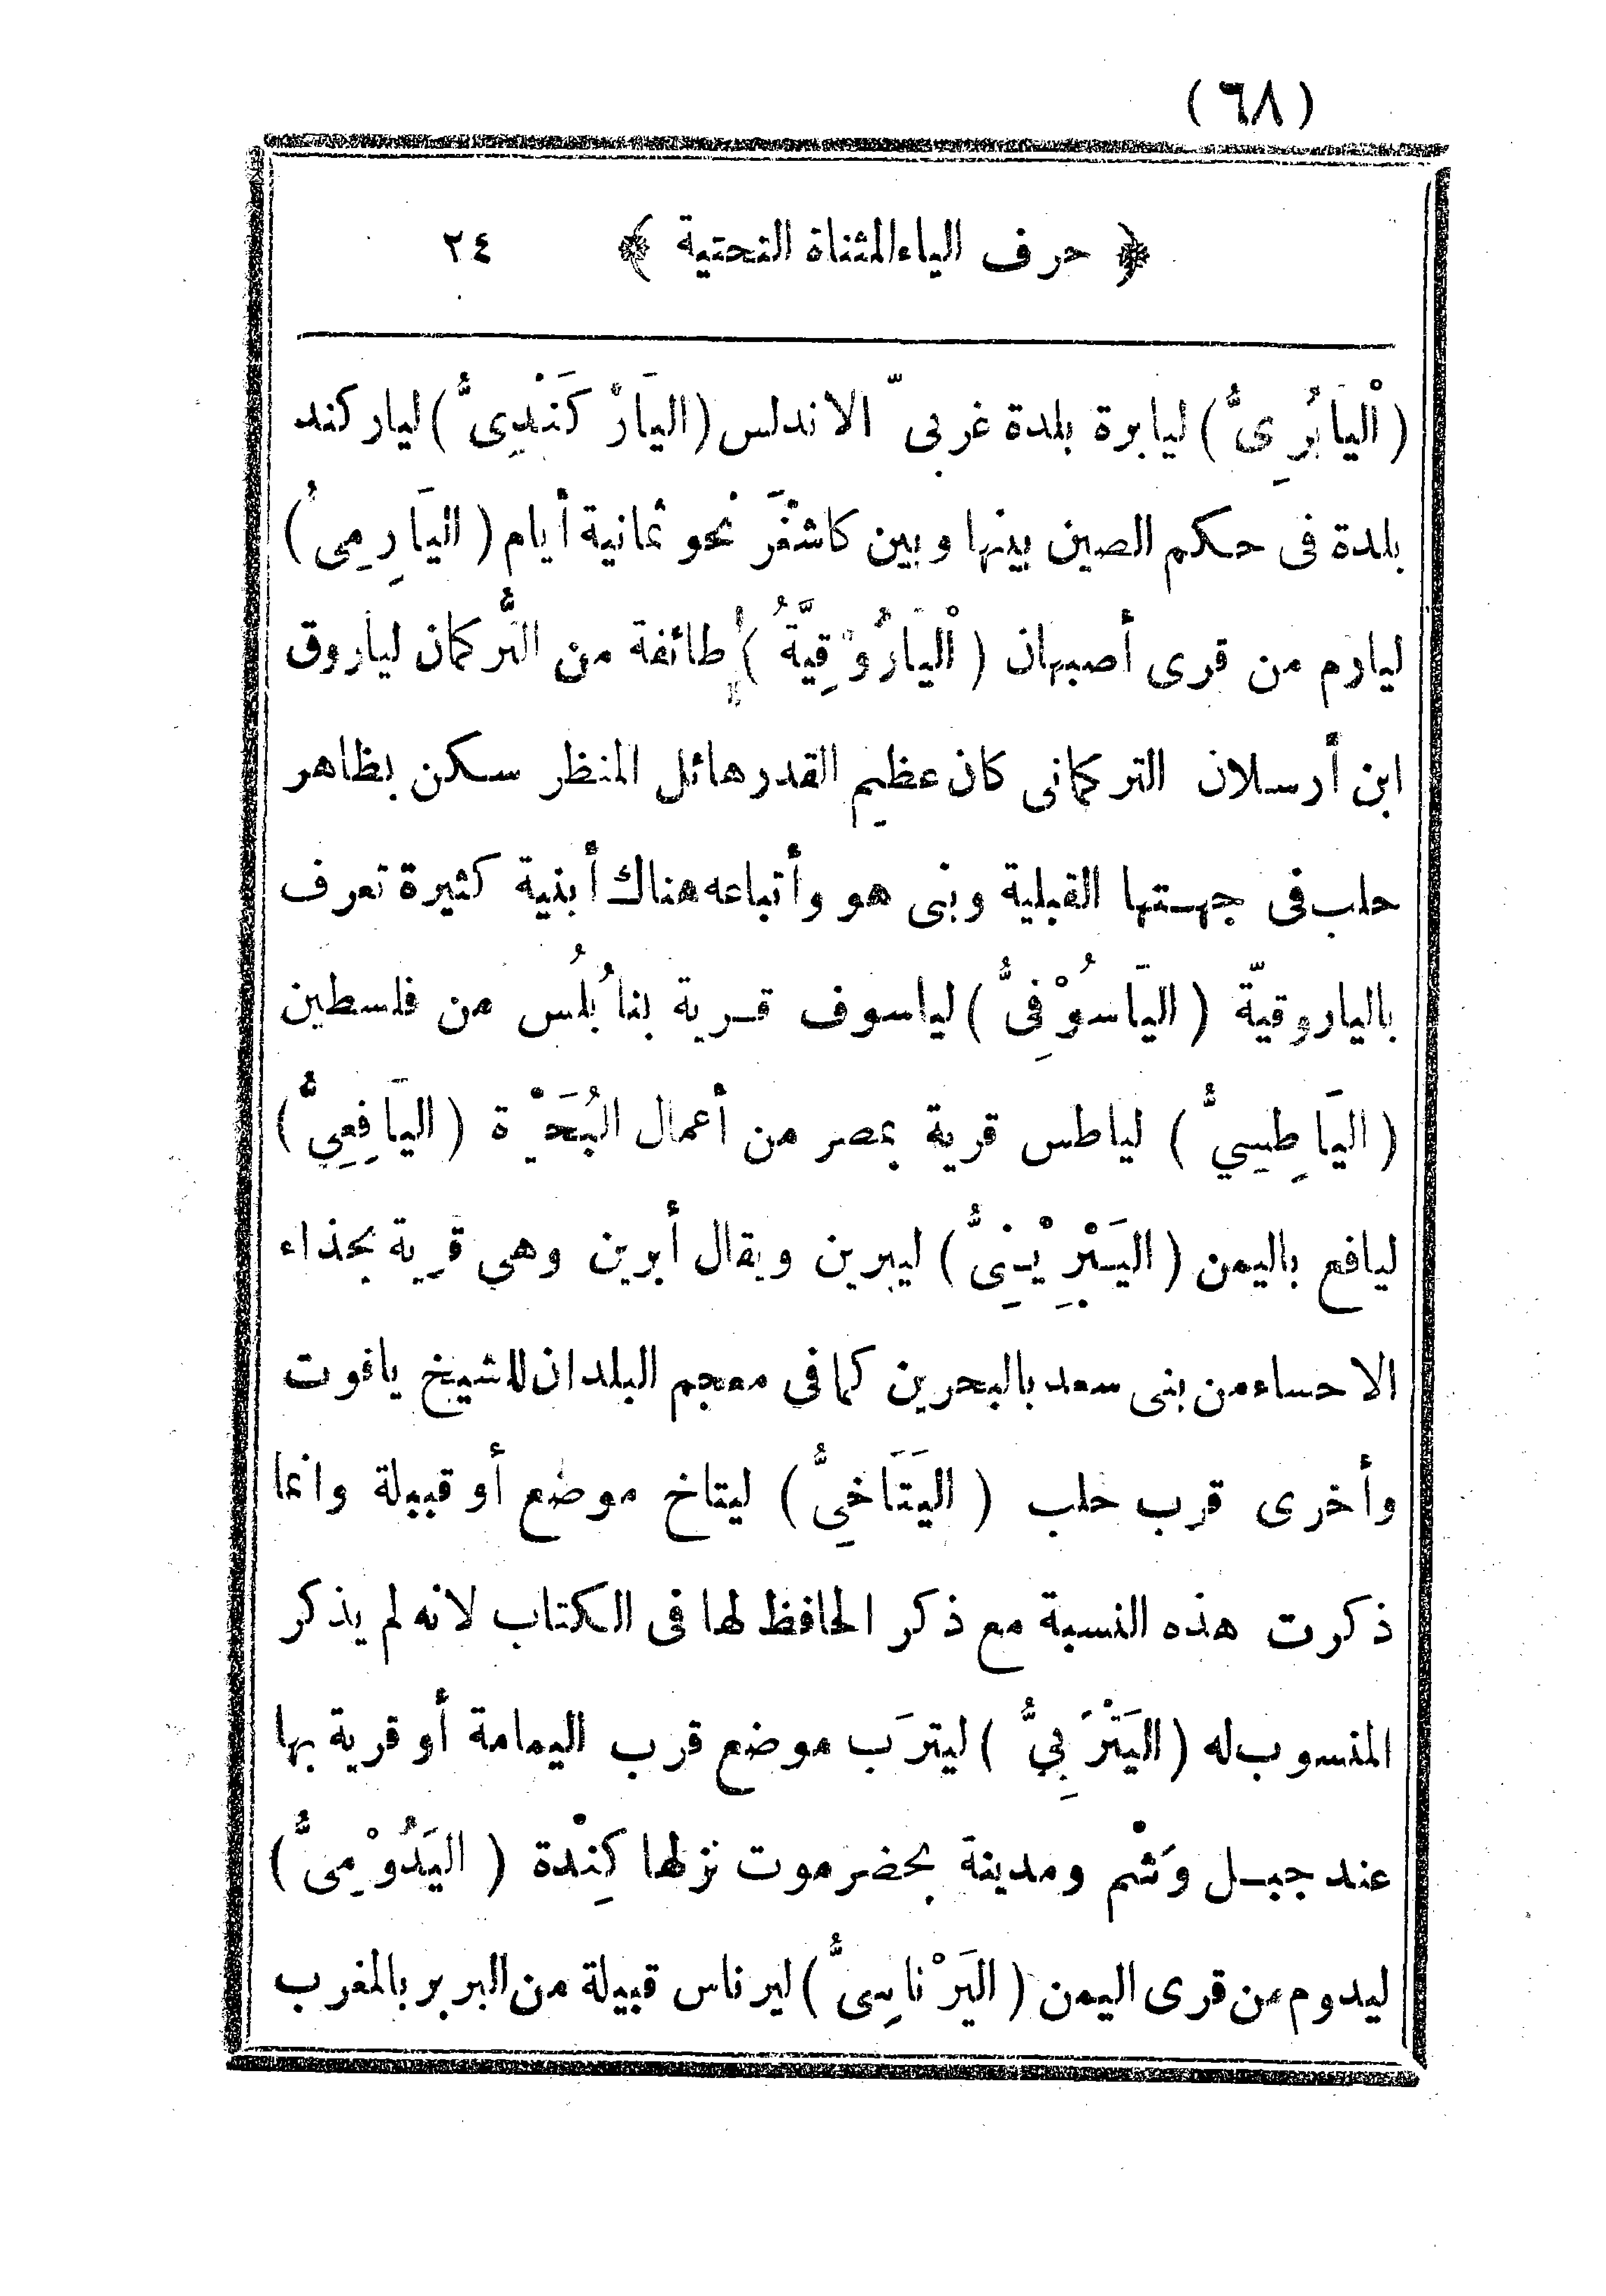 (٦٨)
﴿ حرف الياء المثناة التحتية ﴾ ٢٤
(الْيَابُرِىُّ) ليابرة بلدة غربىّ الاندلس (اليَارْكَنْدِىُّ) لياركند
بلدة فى حكم الصين بينها وبين كاشْغَر نحو ثمانية أيام (اليَارِمِىُّ)
ليارم من قرى أصبهان (الْيَارُوْقِيَّةُ) طائفة من التُّركمان لياروق
ابن أرسلان التركمانى كان عظيم القدر هائل المنظر سكن بظاهر
حلب فى جهتها القبلية وبنى هو وأتباعه هناك أبنية كثيرة تعرف
بالياروقيّة (اليَاسُوْفِىُّ) لياسوف قرية بنابُلُس من فلسطين
(اليَاطِسِيُّ) لياطس قرية بمصر من أعمال البُحَيْرة (اليَافِعِيُّ)
ليافع باليمن (اليَبْرِيْنِىُّ) ليبرين ويقال أبرين وهي قرية بحذاء
الاحساء من بنى سعد بالبحرين كما فى معجم البلدان للشيخ ياقوت
وأخرى قرب حلب (اليَتَاخِىُّ) ليتاخ موضع أو قبيلة وانما
ذكرت هذه النسبة مع ذكر الحافظ لها فى الكتاب لانه لم يذكر
المنسوب له (اليَتْرَبِيُّ) ليترَب موضع قرب اليمامة أو قرية بها
عند جبل وَشْم ومدينة بحضرموت نزلها كِنْدة (اليَدُوْمِىُّ)
ليدوم من قرى اليمن (اليَرْناسِىُّ) ليرناس قبيلة من البربر بالمغرب